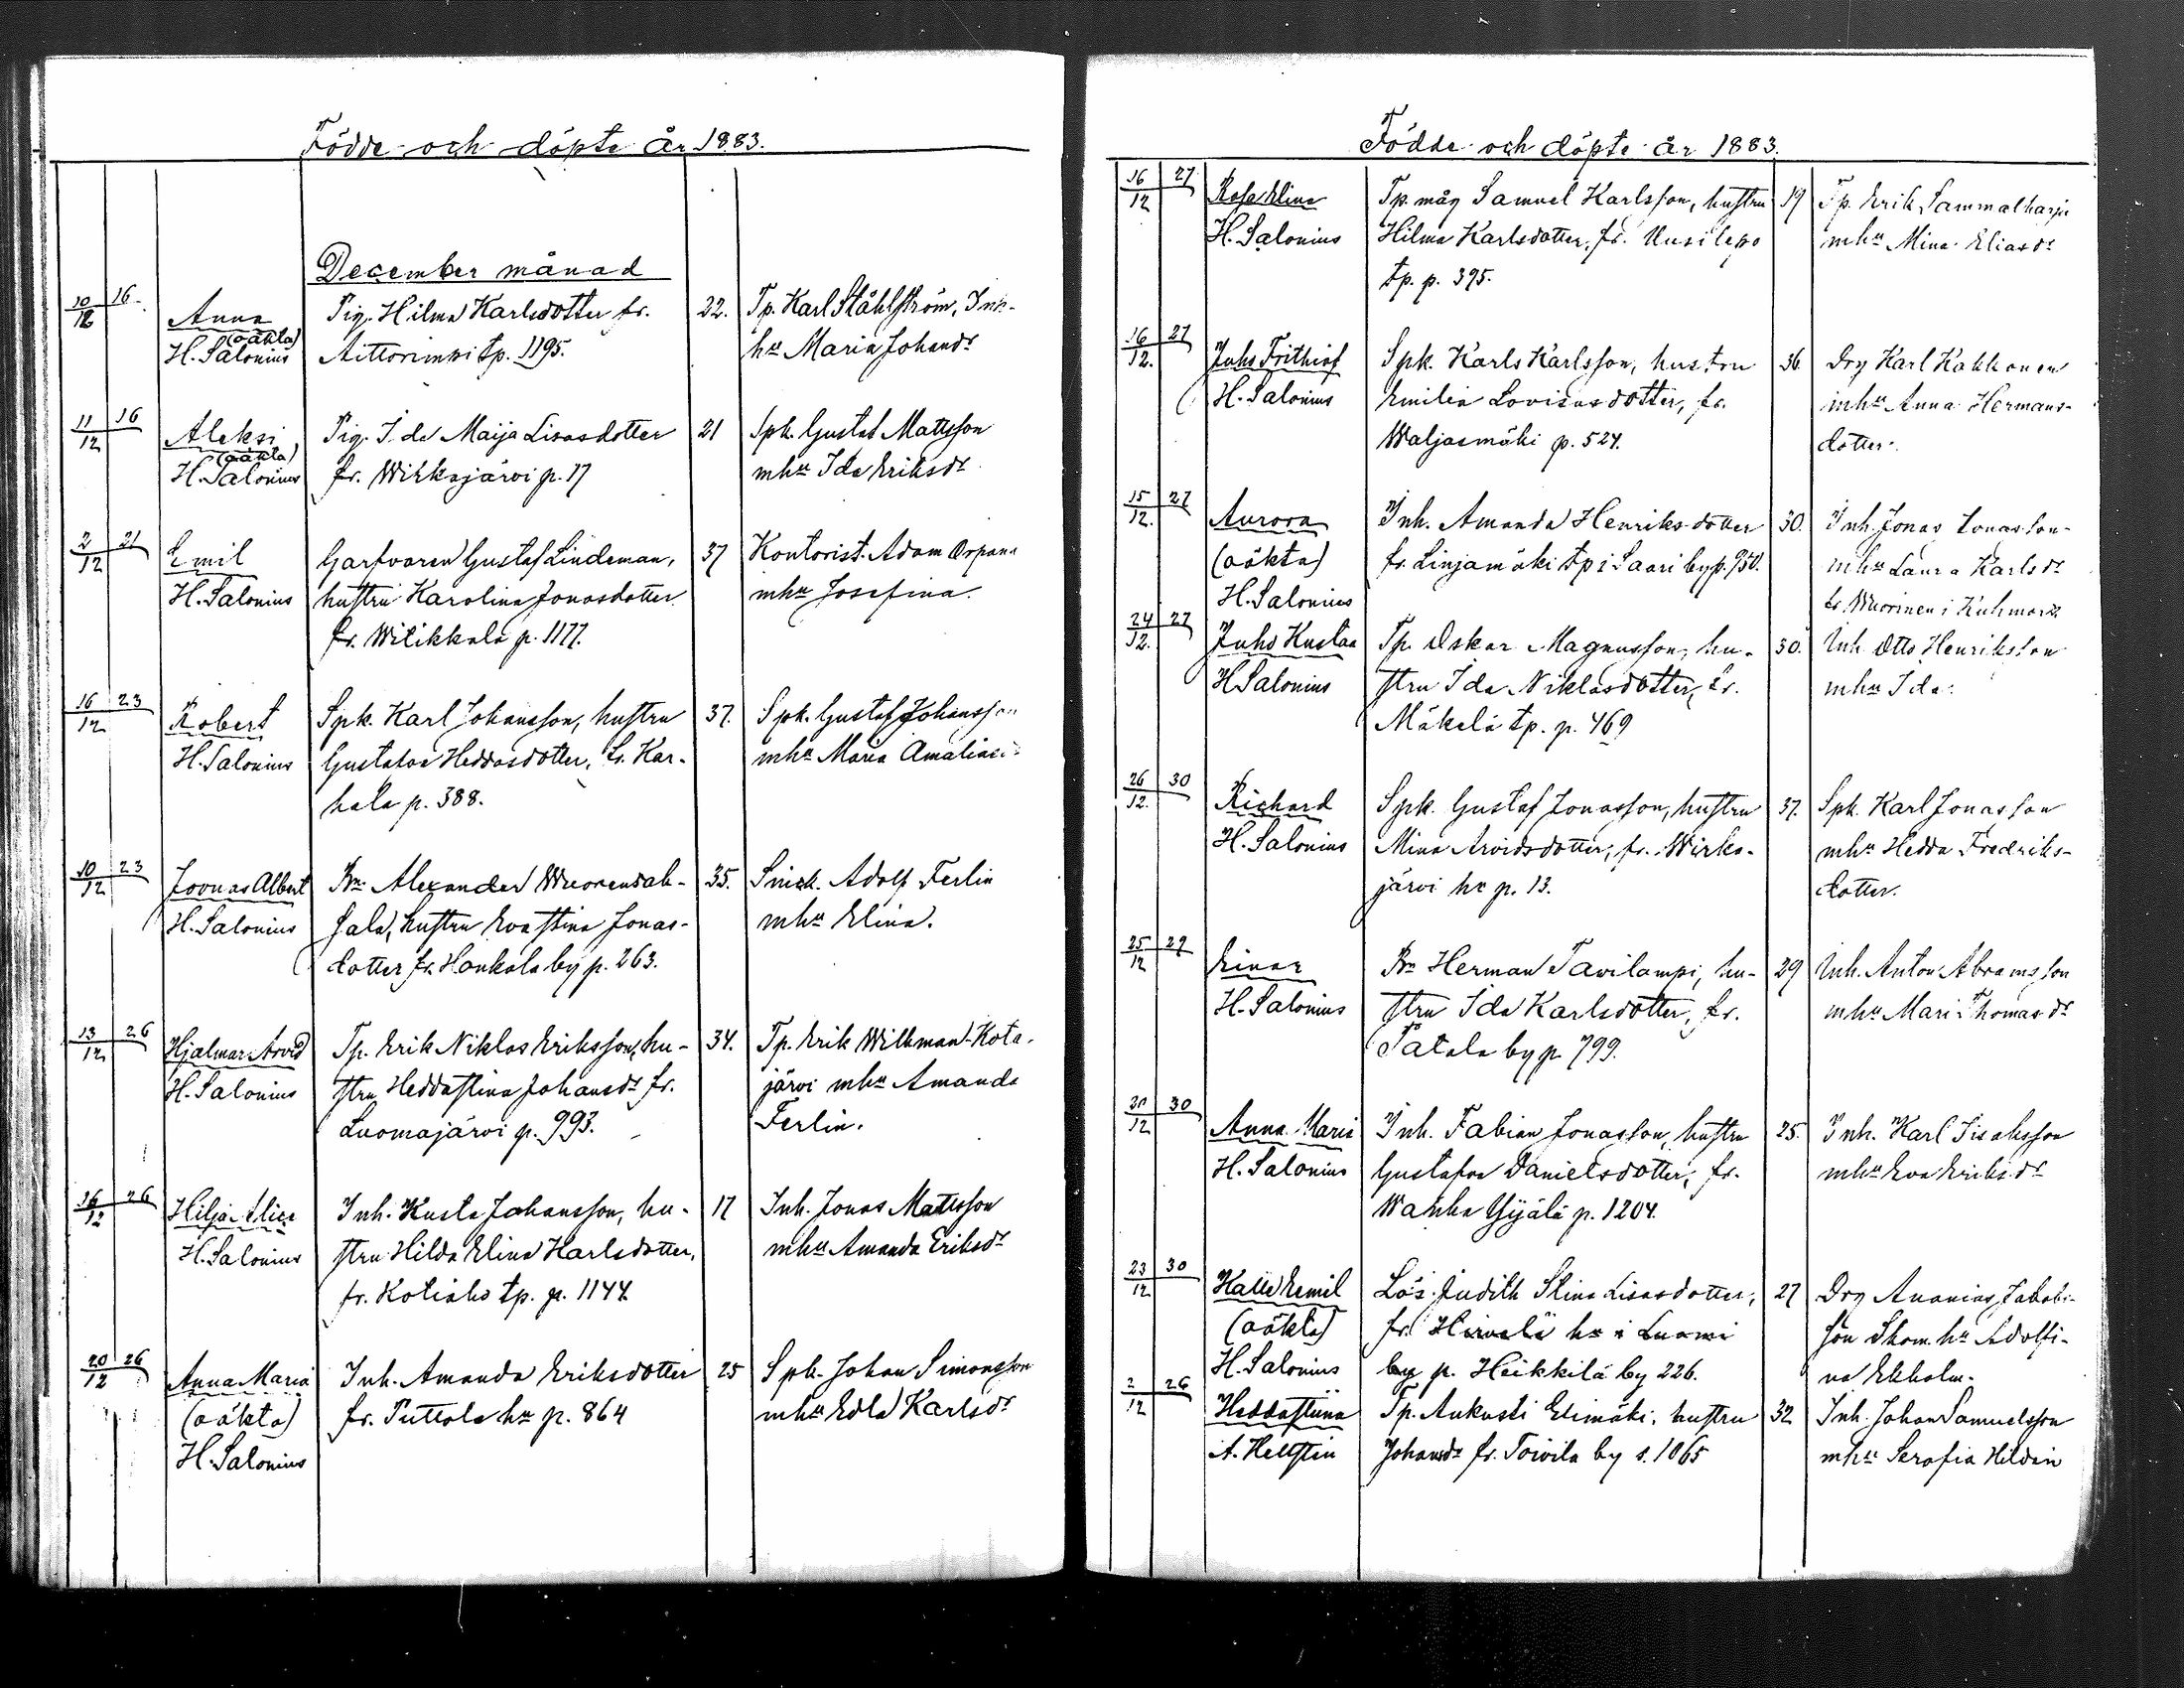 Födde och döpte år 1883.
December månad
10/12 16. Anna Pig. Hilma Karlsdotter fr. 22. Tp. Karl Ståhlström, Inh.
(oäkta)
H. Salonius Aittorinnki tp. 1195. hu Maria Johansdr
11/12 16 Aleksi Pig. Ida Maija Lisasdotter 21 Spk. Gustaf Mattsson
(oäkta)
H. Salonius fr. Wirksjärvi p. 17 mhu Ida Eriksdr
2/12 21 Emil Garfvaren Gustaf Lindeman, 37 Kontorist. Adam Orpana
H. Salonius hustru Karolina Jonasdotter mhu Josefina.
fr. Wilikkala p. 1177.
16/12 23 Robert Spk. Karl Johansson, hustru 37. Spk. Gustaf Johansson
H. Salonius Gustafva Heddasdotter, fr. Kar- mhu Maria
hala p. 388.
10/12 23 Joonas Albert Bn Alexander Wuorensak- 35. Snick. Adolf Ferlin
H. Salonius sala, hustru Eva Stina Jonas- mhu Elina.
dotter fr. Honkola by p. 263.
13/12 26 Hjalmar Arvid Tp. Erik Niklas Eriksson, hu- 34. Tp. Erik Wilkman Kota-
H. Salonius stru Hedda Stina Johansdr fr. järvi mhu Amanda
Luomajärvi p. 993. Ferlin.
16/12 26 Hilja Alice Inh. Kusta Johansson, hu- 17 Inh. Jonas Mattsson
H. Salonius stru Hilda Elina Karlsdotter, mhu Amanda Eriksdr
fr. Kotiaho tp. p. 1144.
20/12 26 Anna Maria Inh. Amanda Eriksdotter 25 Spk. Johan Simonsson
(oäkta) fr. Puttola hr p. 864 mhu Edla Karlsdr
H. Salonius
Födde och döpte år 1883.
16/12 27 Rosa Elina Tp. måg Samuel Karlsson, hustru 19 Tp. Erik Sammalharju
H. Salonius Hilma Karlsdotter, fr. Uusilepo mhu Mina Eliasdr
tp. p. 395.
16/12. 27 Juho Frithiof Spk. Karls Karlsson, hustru 36. Drg Karl Kakkonen
H. Salonius Emilia Lovisasdotter, fr. mhu Anna Hermans-
Waljasmäki p. 524. dotter.
15/12. 27 Aurora Inh. Amanda Henriksdotter 30. Inh. Jonas Jonasson
(oäkta) fr. Linjamäki tp i Saari by p. 950. mhu Laura Karlsdr
H. Salonius fr. Wuorinen i
24/12. 27 Juho Kustaa Tp. Oskar Magnusson, hu- 30. Inh. Otto Henriksson
H Salonius stru Ida Niklasdotter, fr. mhu Ida.
Mäkelä tp. p. 469
26/12. 30 Richard Spk. Gustaf Jonasson, hustru 37. Spk. Karl Jonasson
H. Salonius Mina Arvidsdotter, fr. Wirks- mhu Hedda Fredriks-
järvi hr p. 13. dotter.
25/12 29 Einar Bn Herman Tavilampi, hu- 29 Inh. Anton Abramsson
H. Salonius stru Ida Karlsdotter, fr. mhu Mari Thomasdr
Patala by p. 799.
30 Anna Maria Inh. Fabian Jonasson, hustru 25. Inh. Karl Iisaksson
H. Salonius Gustafva Danielsdotter, fr. mhu Eva Eriksdr
Wanha Yijälä p. 1204.
23/12 30 Kalle Emil Lös. Judith Stina Lisasdotter, 27 Drg Ananias Jakobs-
(oäkta) fr. Hirvelä hr i Luomi son Skom. hu Adolfi-
H. Salonius by p. Heikkilä by 226. na Ekholm.
2/12 26 Heddastiina Tp. Aukusti Elimäki, hustru 32 Inh. Johan Samuelsson
A. Hellstén Johansdr fr. Toivila by s. 1065 mhu Serafia Heldin